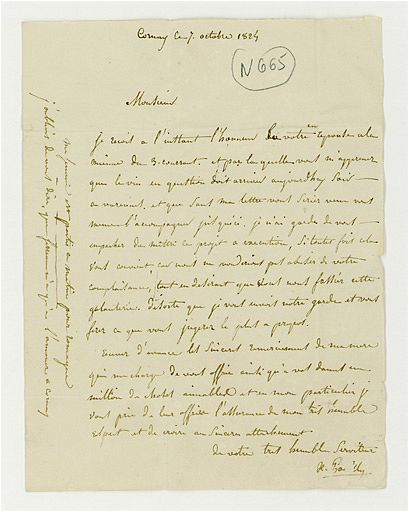 Cornay Ce 7. octobre 1824
N 665
Monsieur
Je recoit a l'intant l'honneur de votre en reponse a la
mienne du 3. courant. et par la quelle vous m'apprenez
que le vin en question doit arriver aujourdhuy soir
a varennes, et que sans ma lettre vous seriez venu vous
meme l'accompagner jusqu'ici. je n'ai garde de vous
empecher de mettre ce projet a execution, si toutes fois cela
vous convient, car nous ne voudrions pas abuser de votre
complaisance, tout en desirant que vous nous fassiez cette
galanterie. desorte que je vous envoie votre garde et vous
ferez ce que vous jugerez le plus a propos.
d'avance les sinceres remerciements de ma mere
qui me charge de vous offrir ainsi qu'a vos dames un
million de choses aimables et en mon particulier je
vous prie de leur offrir l'assurance de mon très humble
respect et de croire au sincere attachement
de votre très humble Serviteur
ma femme est partie a matin pour
j'oubliais de vous dire, que